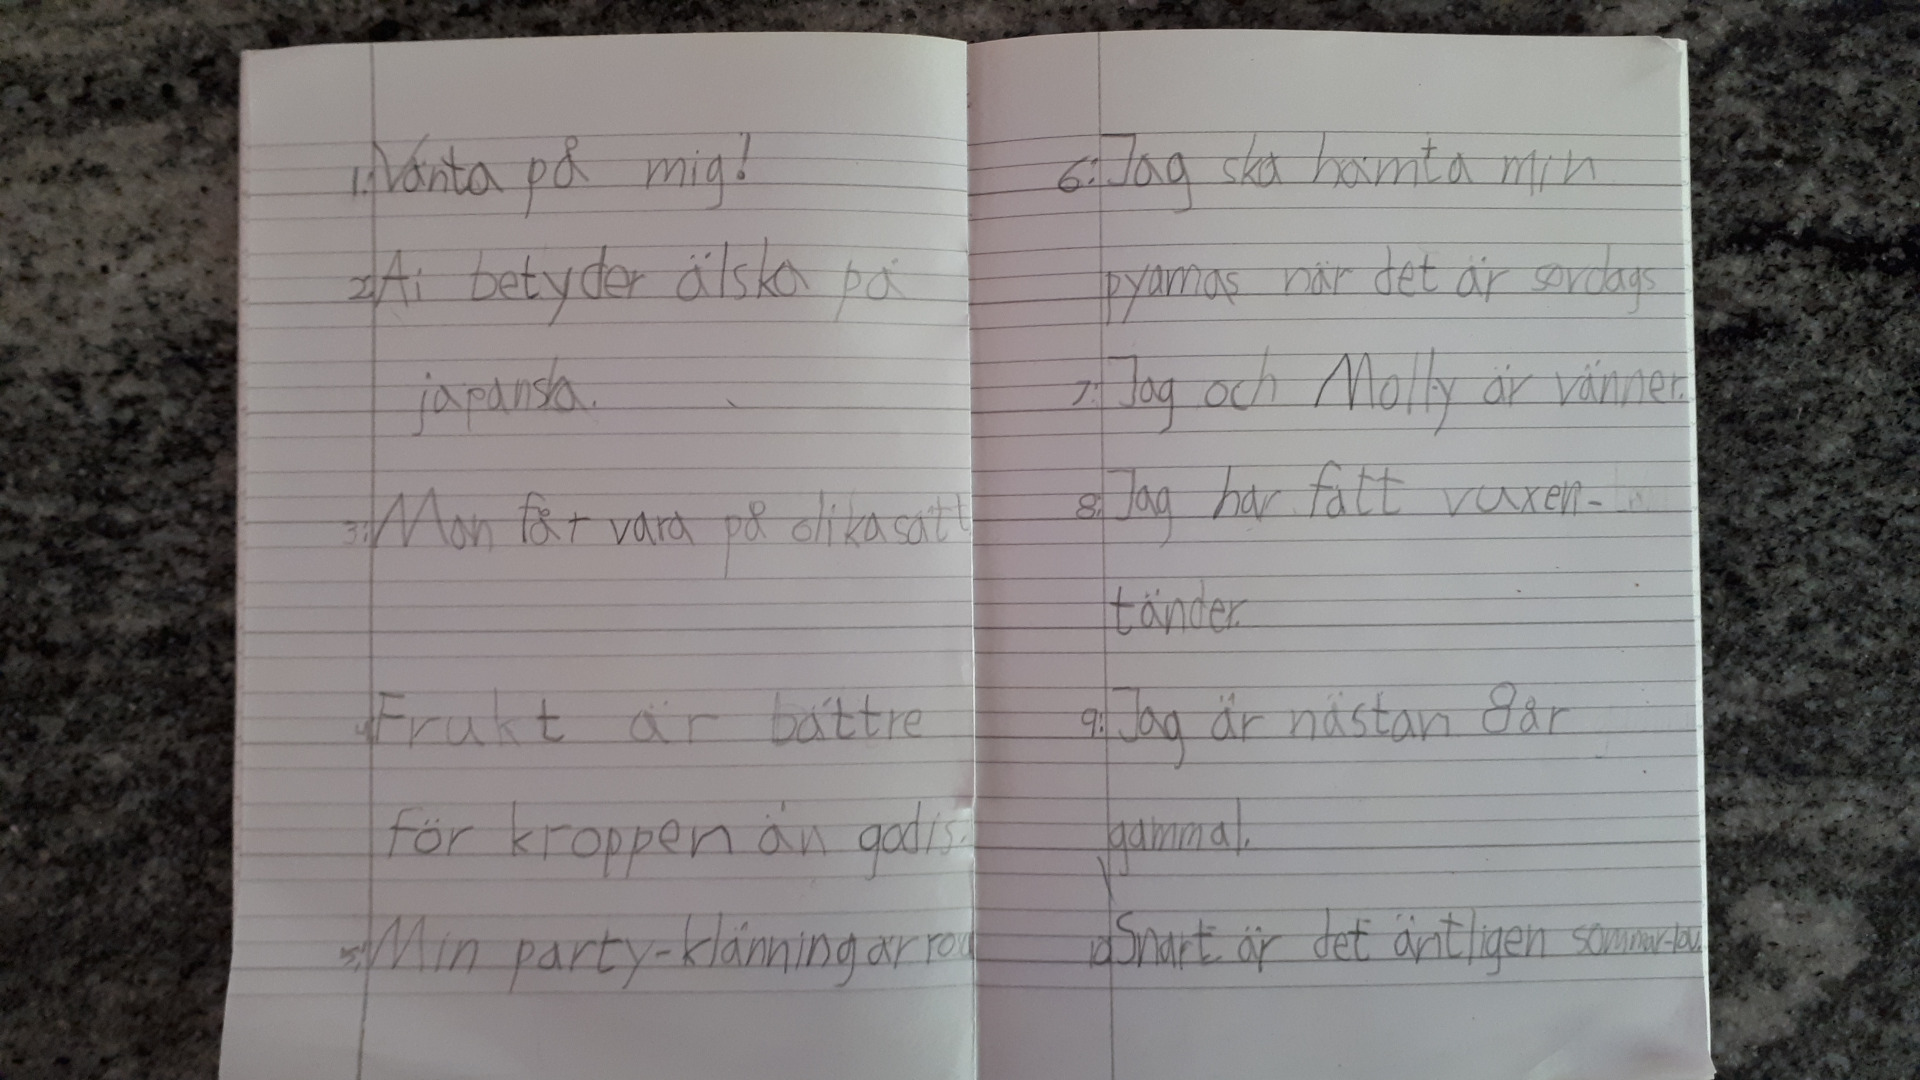 1. Vänta på mig!
2. Ai betyder älska på
japanska.
3. Man får vara på olika sätt
4. Frukt är bättre
för kroppen än godis.
5. Min party-klänning är röd
6. Jag ska hämta min
pyamas när det är sovdags
7. Jag och Molly är vänner.
8. Jag har fått vuxen-
tänder.
9. Jag är nästan 8 år
gammal.
10. Snart är det äntligen sommar-lov.